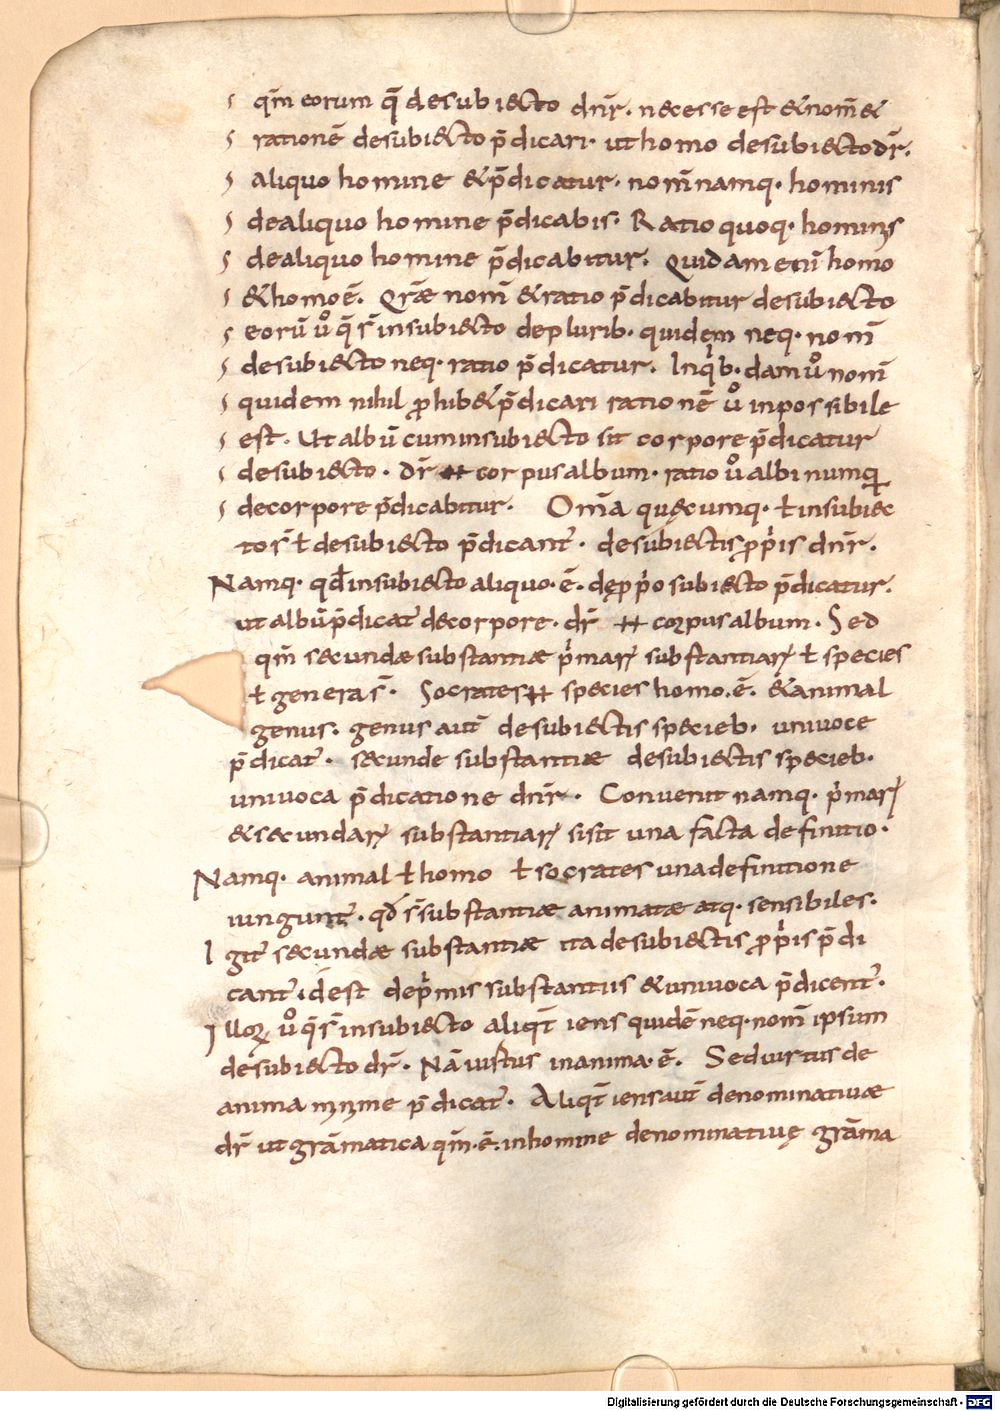 qm̄ eorum q̄ desubiecto dnr̄. necesse est &nom̄ &
rationē desubiecto p̄dicari. ut homo desubiecto dr̄.
aliquo homine &p̄dicatur. nom̄ namq. hominis
dealiquo homine p̄dicabis. Ratio quoq. hominis
dealiquo homine p̄dicabitur. Quidam enī homo
&homo ē. Qrae nom̄ &ratio p̄dicabitur desubiecto
eorū ůo q̄ s̄ insubiecto deplurib. quidem neq. nom̄
desubiecto neq. ratio p̄dicatur. Inqͥb. dam ůo nom̄
quidem nihil ꝓhib& p̄dicari rationē ůo inpossibile
est. Ut albū cum insubiecto sit corpore p̄dicatur
desubiecto. dr̄ ħ corpus album. ratio ůo albi numq
decorpore p̄dicabitur. Om̄a quęcumq. ł insubiec
to s̄ ł desubiecto p̄dicant̄. desubiectis ꝓpͥis dnr̄.
Namq. qđ insubiecto aliquo. ē. de ꝓpͥo subiecto p̄dicatur.
ut albū p̄dicat̄ decorpore. dr̄ ħ corpus album. Sed
qm̄ secundae substantiae pͥmarꝝ substantiarꝝ ł species
ł genera s̄. Socrates ħ species homo. ē. & animal
genus. genus aut̄ desubiectis specieb. univoce
p̄dicat̄. secunde substantiae desubiectis specieb.
univoca p̄dicatione dnr̄. Convenit namq. pͥmarꝝ
&secundarꝝ substantiarꝝ si sit una facta definitio.
Namq. animal ł homo ł socrates una definitione
iungunt̄. qđ s̄ substantiae animatae atq. sensibiles.
Igit̄ secundae substantiae ita desubiectis ꝓpͥis p̄di
cant̄. idest depͥmis substantiis &univoca p̄dicent̄.
Illorꝝ ůo q̄ s̄ insubiecto aliqt̄iens quidē neq. nom̄ ipsum
desubiecto dr̄. Nā iustus inanima. ē. Sed virtus de
anima minime p̄dicat̄. Aliqt̄iens aut̄ denominativae
dr̄ ut grām̄atica qm̄. ē. inhomine denominativę grāma
Digitalisierung gefördert durch die Deutsche Forschungsgemeinschaft - DFG